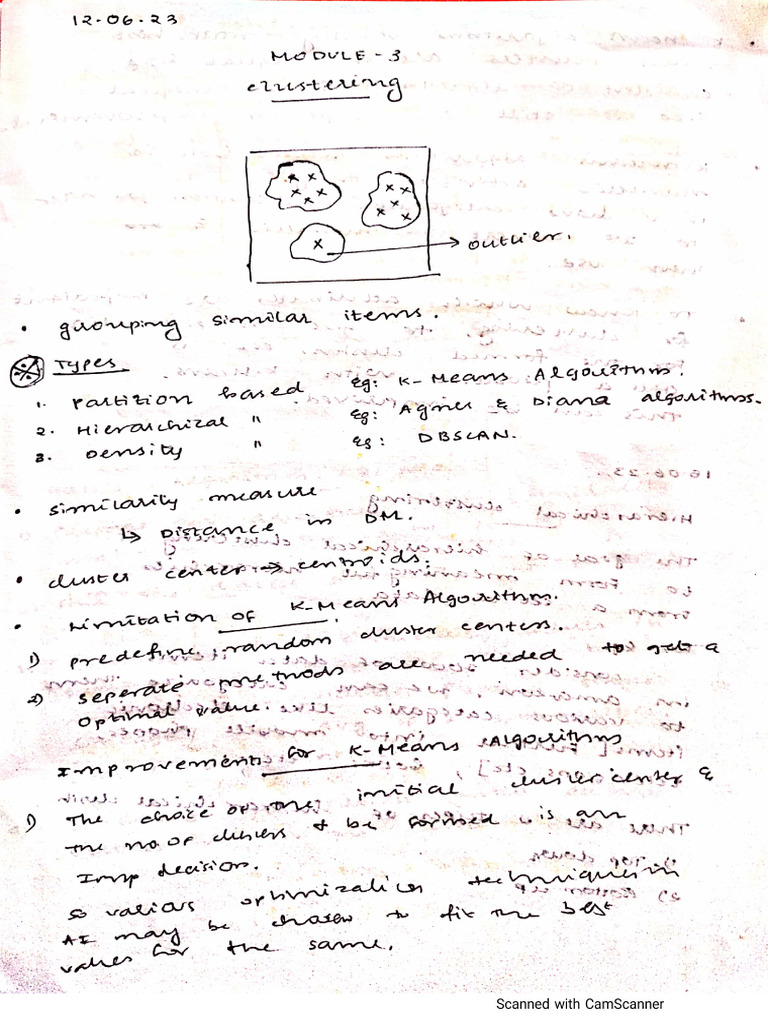 12-06-23
MODULE - 3
clustering
outlier.
• grouping similar items.
Types.
1. Partition based Eg: K-Means Algorithm.
2. Hierarchical " Eg: Agnes & Diana algorithms.
3. Density " Eg: DBSCAN.
• similarity measure
↳ Distance in DM.
• cluster center → centroids.
• Limitation of K-Means Algorithm.
1) predefine random cluster centers.
2) seperate methods are needed to get a
optimal value.
Improvement for K-Means Algorithms
1) The choice of the initial cluster center &
the no of clusters to be formed is an
Imp decision.
So various optimization techniques in
AI may be chosen to fix the best
values for the same.
Scanned with CamScanner